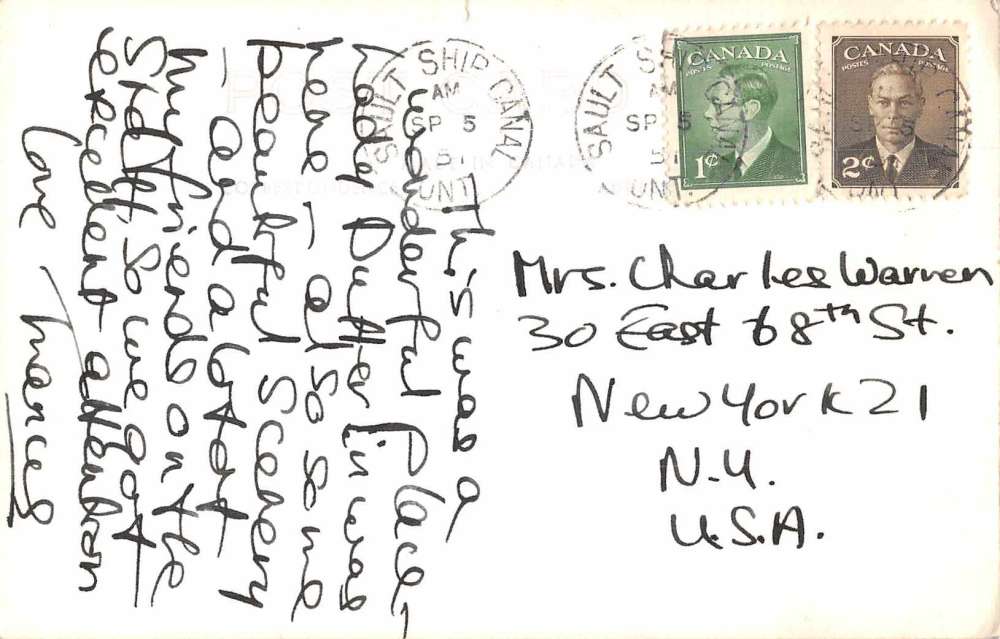 SAULT SHIP CANAL
AM
SP 5
51
ONT.
SAULT SHIP CANAL
AM
SP 5
51
ONT.
CANADA
POSTES POSTAGE
1¢
CANADA
POSTES POSTAGE
2¢
This was a
wonderful place,
was
here – also some
beautiful scenery
– and a lot of
my friends on the
staff so we got
excellent attention
love Nancy
Mrs. Charles Warren
30 East 68th St.
New York 21
N.Y.
U.S.A.